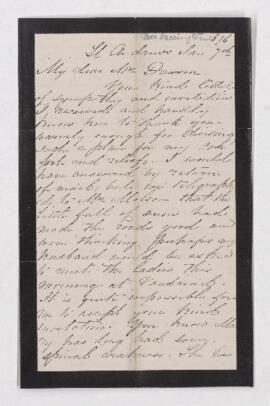 Mrs Barrington 1876
St Andrews Jan 7th
My dear Mrs Dawson
Your kind letter
of sympathy and invitation
I received and hardly
know how to thank you
warmly enough for
such a plan for my com
fort and relief. I would
have answered by return
of mail, but we telegraph
ed to Mrs Molson that the
little fall of snow had
made the roads good and
now thinking perhaps my
husband would be
to meet the ladies this
morning at Vaudreuil.
It is quite impossible for
me to accept your kind
invitation. You know Ma
ry has long had some
spinal weakness. She has